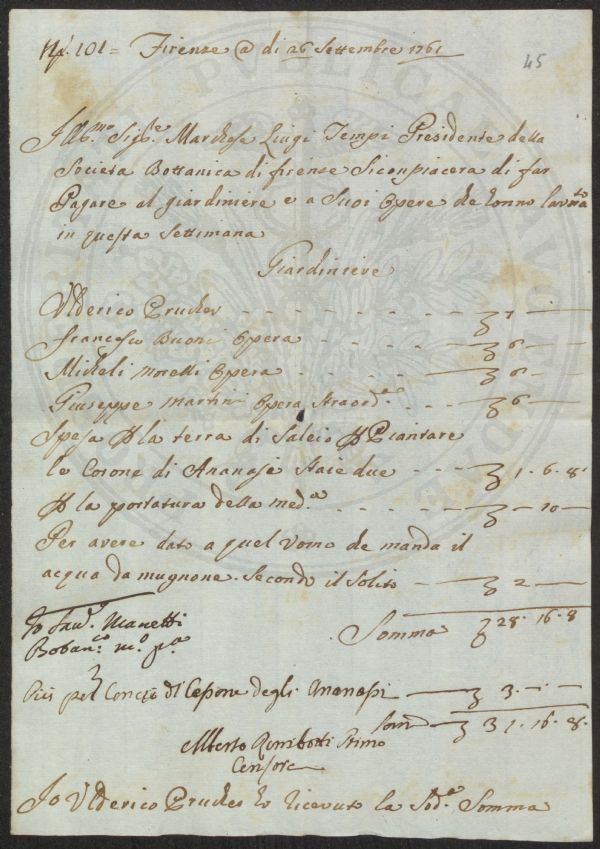 N.º 101 = Firenze @ di 26 Settembre 1761
45
Ill.mo Sig.re Marchese Luigi Tempi Presidente della
Societa Bottanica di firenze Si conpiacera di far
Pagare al giardiniere e a Suoi Opere che Lonno Lavorato
in questa Settimana
Giardiniere
Vlderico Prucker - - - - - £ 7 -
francesco Buoni Opera - - - - £ 6 -
Micheli Moretti Opera - - - - £ 6 -
Giuseppe Martini Opera Straord.e - - £ 6 -
Spesa P la terra di Salcio P Piantare
le Corone di Ananase Staie due - - £ 1 . 6 . 8
P la portatura della med.a - - - - £ - 10 -
Per avere dato a quel Vomo che manda il
acqua da mugnone Secondo il Solito - £ 2 -
Io Sav. Manetti
Botan.co m.o p.a
Somma £ 28 . 16 . 8
Più pel Concio di Capone degli Ananassi - £ 3 . - . -
Som.a - £ 31 . 16 . 8
Alberto Rimbotti Primo
Censore
Io Vlderico Prucker ho ricevuto la Sod.a Somma